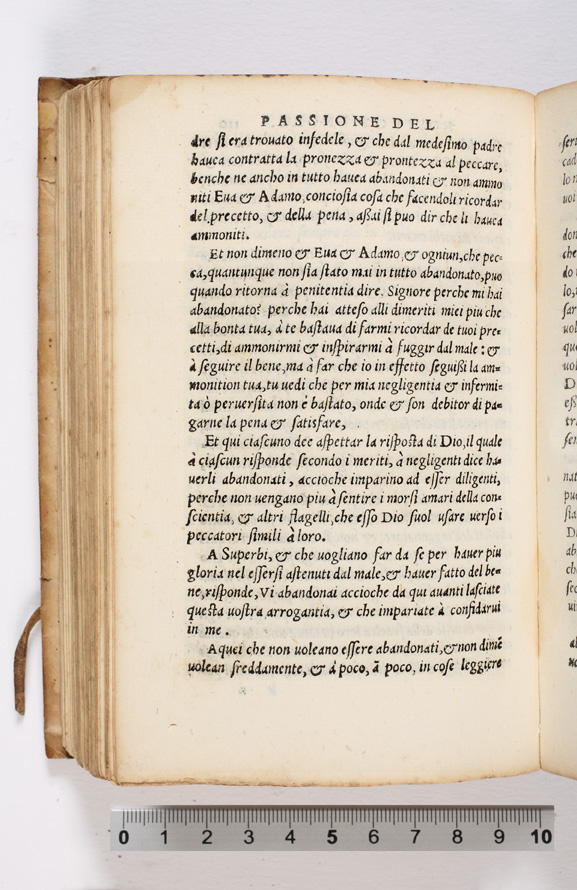 PASSIONE DEL
dre si era trouato infedele, & che dal medesimo padre
hauea contratta la pronezza & prontezza al peccare,
benche ne ancho in tutto hauea abandonati & non ammo
niti Eua & Adamo, conciosia cosa che facendoli ricordar
del precetto, & della pena, aßai si puo dir che li hauea
ammoniti.
Et non dimeno & Eua & Adamo, & ogniun, che pec-
ca, quantunque non sia stato mai in tutto abandonato, puo
quando ritorna à penitentia dire. Signore perche mi hai
abandonato? perche hai atteso alli dimeriti miei piu che
alla bonta tua, à te bastaua di farmi ricordar de tuoi pre-
cetti, di ammonirmi & inspirarmi à fuggir dal male: &
à seguire il bene, ma à far che io in effetto seguißi la am-
monition tua, tu uedi che per mia negligentia & infermi-
ta ò peruersita non è bastato, onde & son debitor di pa-
garne la pena & satisfare,
Et qui ciascuno dee aspettar la risposta di Dio, il quale
à ciascun risponde secondo i meriti, à negligenti dice ha-
uerli abandonati, accioche imparino ad esser diligenti,
perche non uengano piu à sentire i morsi amari della con-
scientia, & altri flagelli, che esso Dio suol usare uerso i
peccatori simili à loro.
A Superbi, & che uogliano far da se per hauer piu
gloria nel essersi astenuti dal male, & hauer fatto del be-
ne, risponde, Vi abandonai accioche da qui auanti lasciate
questa uostra arrogantia, & che impariate à confidarui
in me.
A quei che non uoleano essere abandonati, & non dimē
uolean freddamente, & à poco, à poco, in cose leggiere
0 1 2 3 4 5 6 7 8 9 10